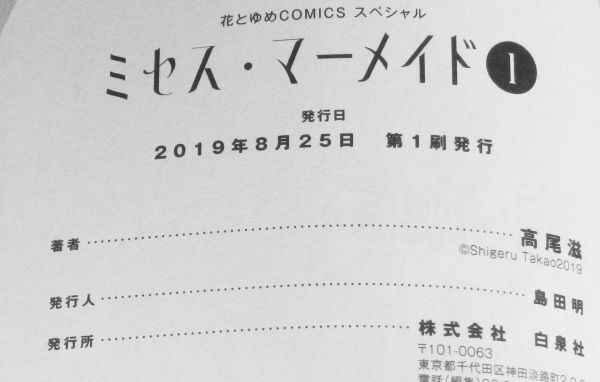 花とゆめCOMICS スペシャル
ミセス・マーメイド 1
発行日
2019年8月25日 第1刷発行
著者 高尾滋
©Shigeru Takao2019
発行人 島田明
発行所 株式会社 白泉社
〒101-0063
東京都千代田区神田淡路町
電話(編集)